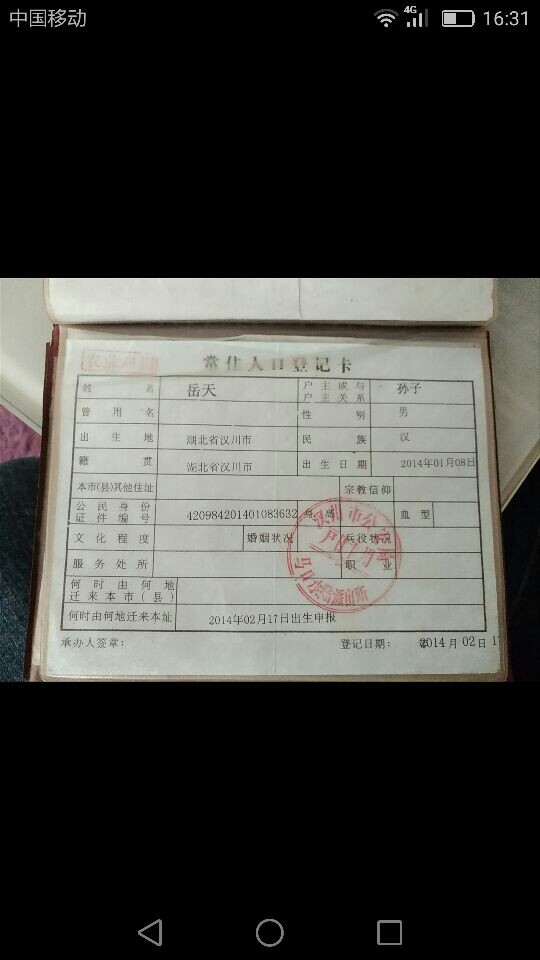 中国移动 4G 16:31
农业户口
常住人口登记卡
姓名 岳天 户主或与户主关系 孙子
曾用名 性别 男
出生地 湖北省汉川市 民族 汉
籍贯 湖北省汉川市 出生日期 2014年01月08日
本市(县)其他住址 宗教信仰
公民身份证件编号 420984201401083632 身高 血型
文化程度 婚姻状况 兵役状况
服务处所 职业
何时由何地迁来本市(县)
何时由何地迁来本址 2014年02月17日出生申报
承办人签章: 登记日期: 2014年02月17日
汉川市公安局
户口专用
派出所